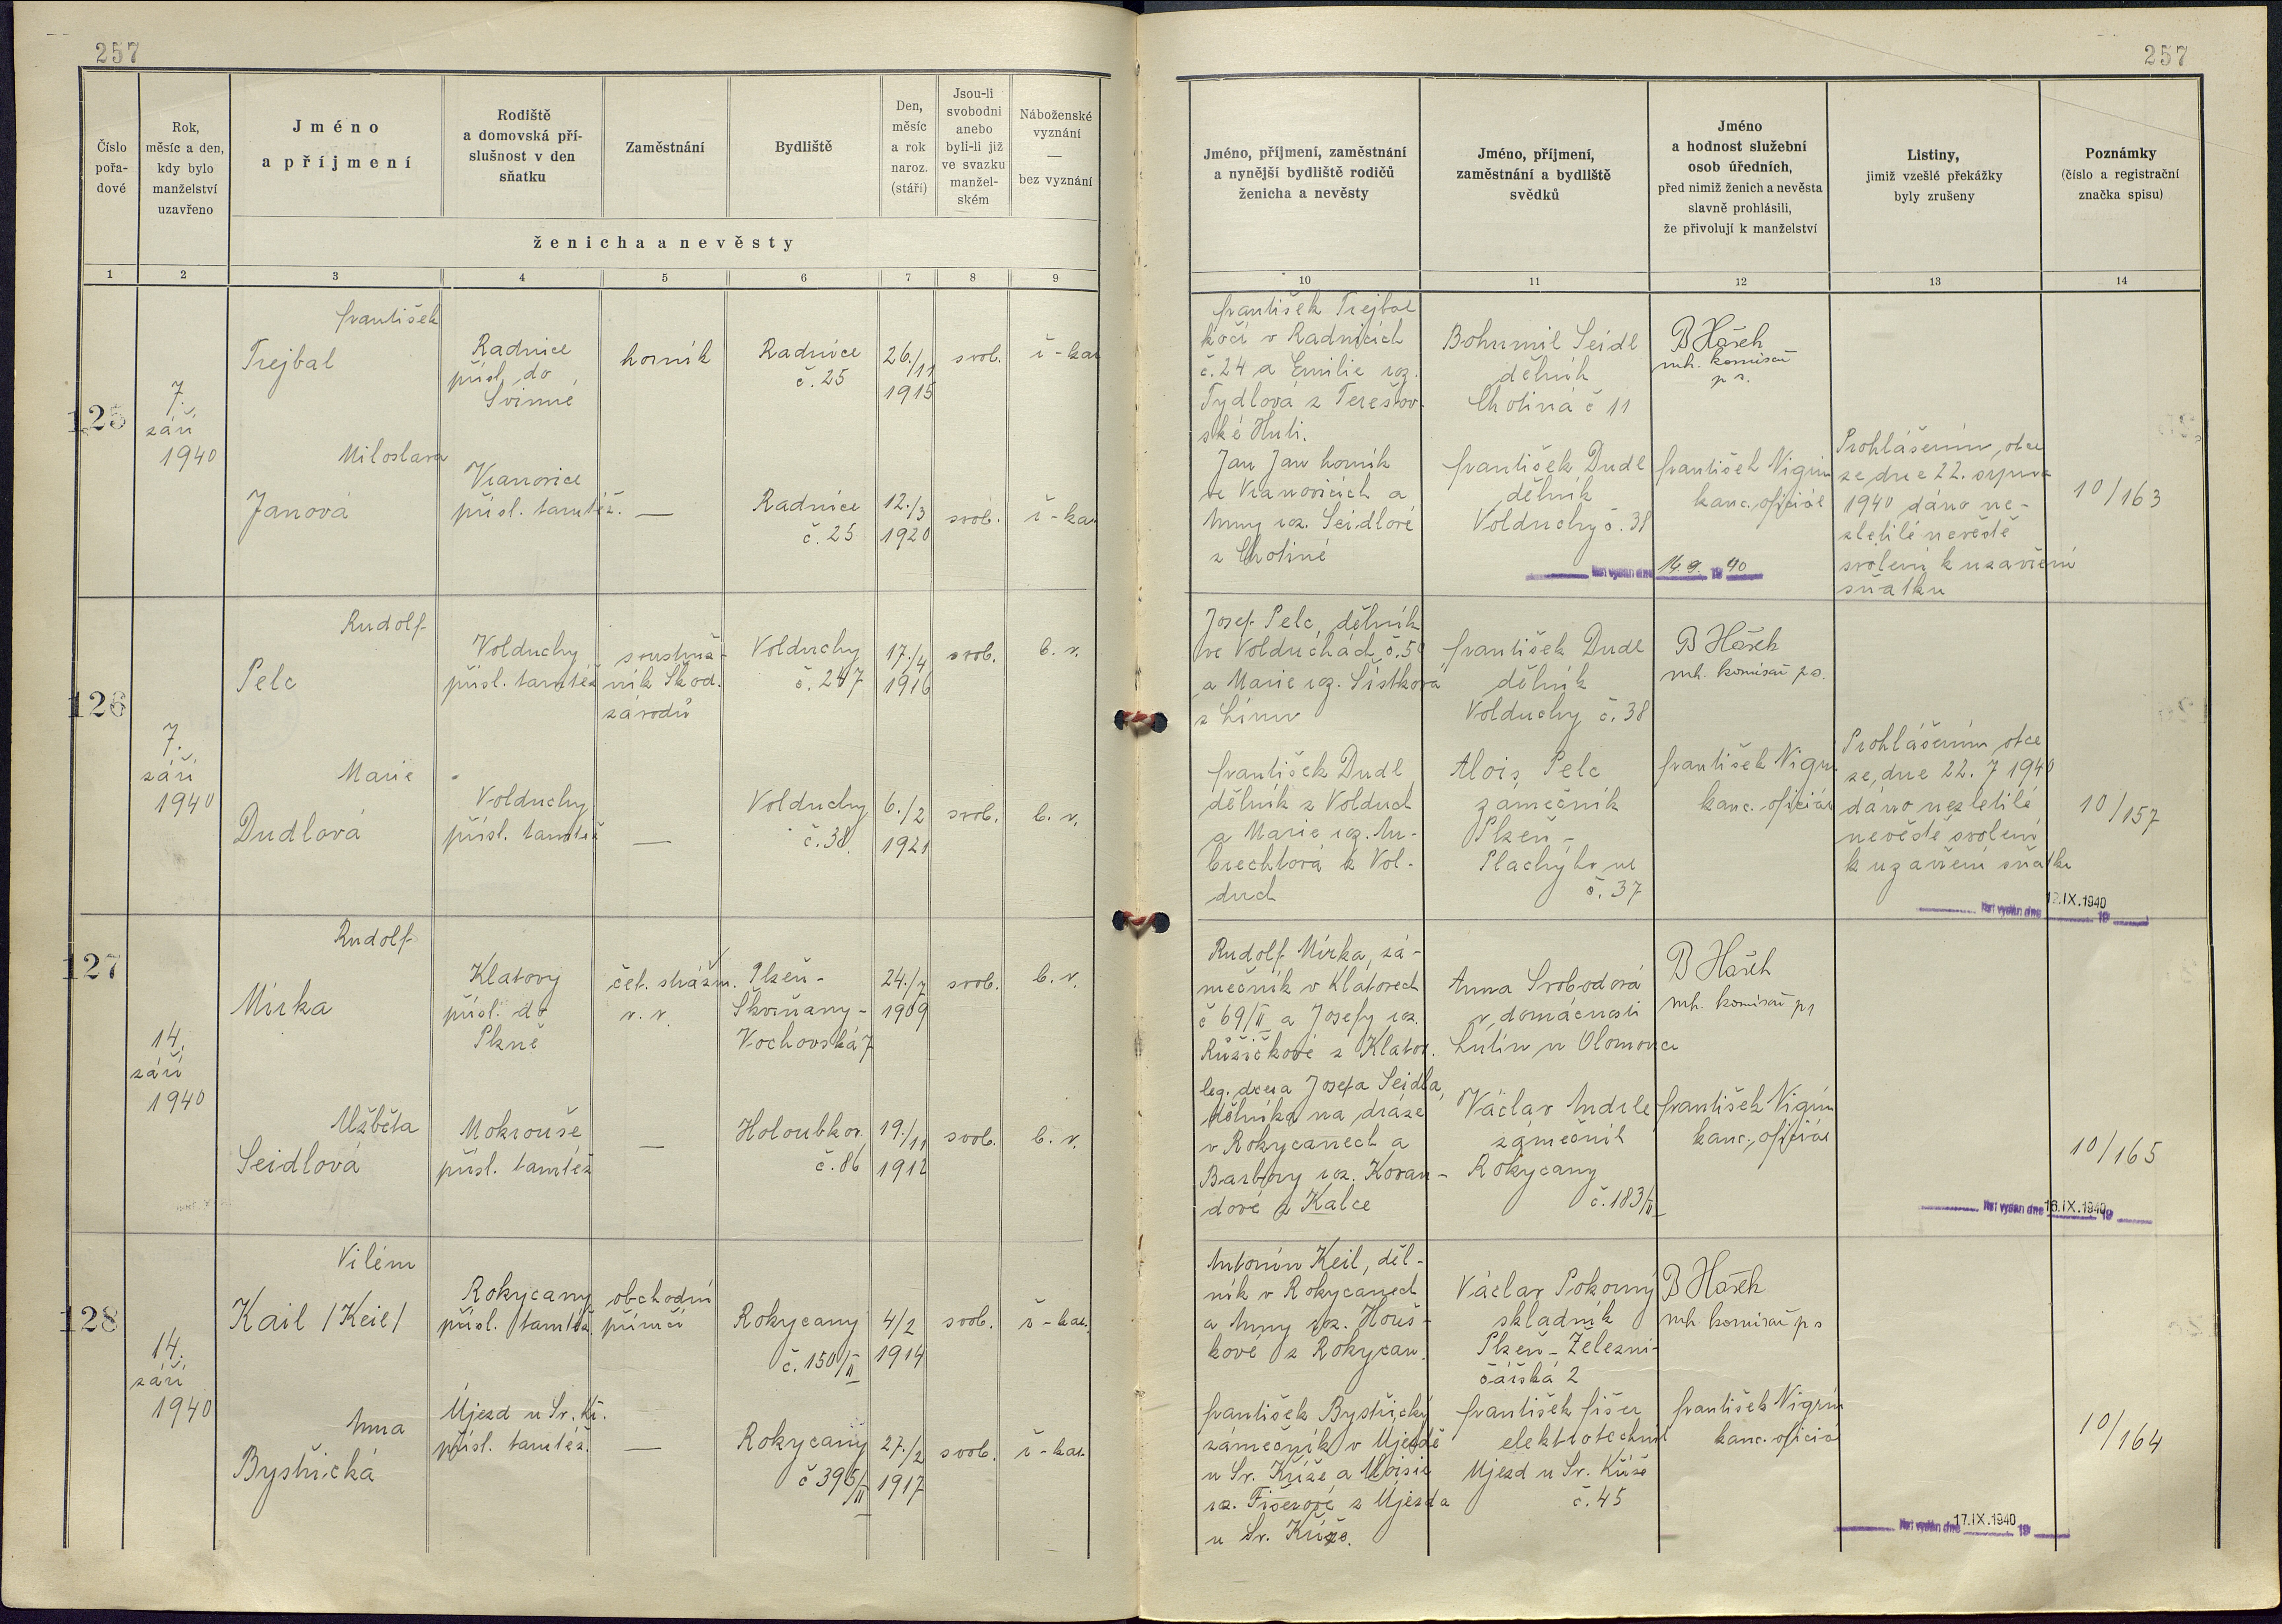 257
257
Číslo
pořa-
dové
Rok,
měsíc a den,
kdy bylo
manželství
uzavřeno
Jméno
a příjmení
Rodiště
a domovská pří-
slušnost v den
sňatku
Zaměstnání
Bydliště
Den,
měsíc
a rok
naroz.
(stáří)
Jsou-li
svobodni
anebo
byli-li již
ve svazku
manžel-
ském
Náboženské
vyznání
—
bez vyznání
ženicha a nevěsty
Jméno, příjmení, zaměstnání
a nynější bydliště rodičů
ženicha a nevěsty
Jméno, příjmení,
zaměstnání a bydliště
svědků
Jméno
a hodnost služební
osob úředních,
před nimiž ženich a nevěsta
slavně prohlásili,
že přivolují k manželství
Listiny,
jimiž vzešlé překážky
byly zrušeny
Poznámky
(číslo a registrační
značka spisu)
1 2 3 4 5 6 7 8 9 10 11 12 13 14
125
7.
září
1940
František
Trejbal
Radnice
přísl. do
Svinné
horník
Radnice
č. 25
26./11
1915
svob.
ř-kat
František Trejbal
kočí v Radnicích
č. 24 a Emilie roz.
Tydlová z Terešov-
ské Huti.
Bohumil Seidl
dělník
Chotiná č 11
B Hašek
mh. komisař
p s.
Miloslava
Janová
Vranovice
přísl. tamtéž.
—
Radnice
č. 25
12./3
1920
svob.
ř-kat
Jan Jan horník
ve Vranovicích a
Anny roz. Seidlové
z Chotiné
František Dudl
dělník
Volduchy č. 38
František Nigrin
kanc. oficiál
Prohlášením otce
ze dne 22. srpna
1940 dáno ne-
zletilé nevěstě
svolení k uzavření
sňatku
10/163
list vydán dne 14.9. 1940
126
7.
září
1940
Rudolf
Pelc
Volduchy
přísl. tamtéž
soustruž-
ník Škod.
závodů
Volduchy
č. 247
17./4
1916
svob.
b. v.
Josef Pelc, dělník
ve Volduchách č. 50
a Marie roz. Šístková
z Línu
František Dudl
dělník
Volduchy č. 38
B Hašek
mh. komisař ps.
Marie
Dudlová
Volduchy
přísl. tamtéž
—
Volduchy
č. 38
6./2
1921
svob.
b. v.
František Dudl
dělník z Volduch
a Marie roz. Au-
brechtová z Vol-
duch
Alois Pelc
zámečník
Plzeň -
Plachýho ul
č. 37
František Nigrin
kanc. oficiál
Prohlášením otce
ze dne 22. 7 1940
dáno nezletilé
nevěstě svolení
k uzavření sňatku
10/157
list vydán dne 12.IX.1940 19
127
14.
září
1940
Rudolf
Mirka
Klatovy
přísl. do
Plzně
čet. strážm.
v. v.
Plzeň -
Skvrňany -
Vochovská 7
24./7
1909
svob.
b. v.
Rudolf Mirka, zá-
mečník v Klatovech
č 69/II a Josefy roz.
Růžičkové z Klatov.
Anna Svobodová
v domácnosti
Lutín u Olomouce
B Hašek
mh. komisař ps
Alžběta
Seidlová
Mokrouše
přísl. tamtéž
—
Holoubkov
č. 86
19./11
1912
svob.
b. v.
leg. dcera Josefa Seidla,
dělníka na dráze
v Rokycanech a
Barbory roz. Koran-
dové z Kalce
Václav Andrle
zámečník
Rokycany
č. 183/II
František Nigrin
kanc. oficiál
10/165
list vydán dne 16.IX.1940 19
128
14.
září
1940
Vilém
Kail /Keil/
Rokycany
přísl. tamtéž
obchodní
příručí
Rokycany
č. 150/II
4/2
1914
svob.
ř-kat.
Antonín Keil, děl-
ník v Rokycanech
a Anny roz. Houš-
kové z Rokycan.
Václav Pokorný
skladník
Plzeň - Železni-
čářská 2
B Hašek
mh komisař ps
Anna
Bystřická
Újezd u Sv. Kř.
přísl. tamtéž.
—
Rokycany
č 395/II
27./2
1917
svob.
ř-kat.
František Bystřický
zámečník v Újezdě
u Sv. Kříže a Aloisie
roz. Fišerové z Újezda
u Sv. Kříže.
František Fišer
elektrotechnik
Újezd u Sv. Kříže
č. 45
František Nigrin
kanc. oficiál
10/164
list vydán dne 17.IX.1940 19